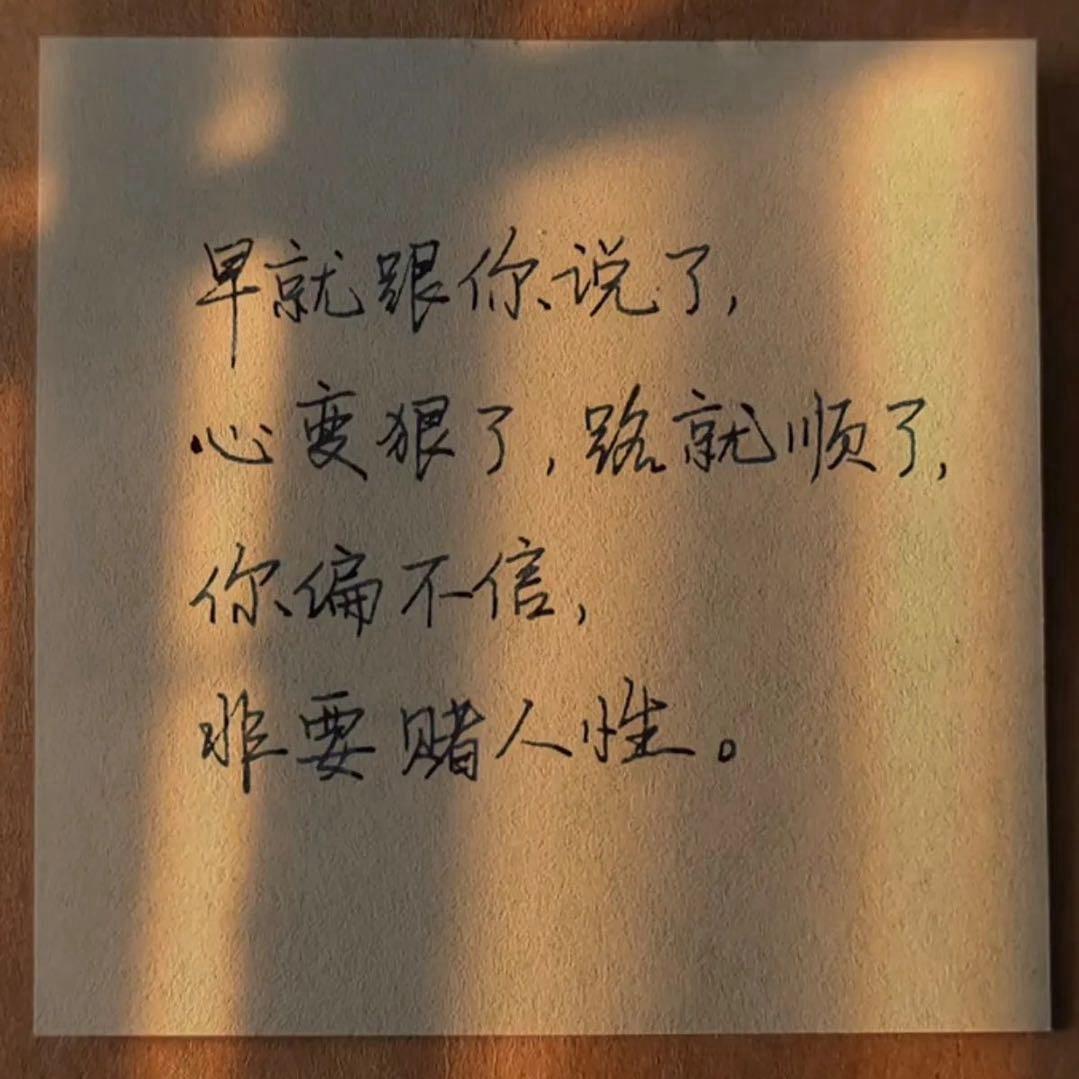 早就跟你说了,
心变狠了,路就顺了,
你偏不信,
非要赌人性。